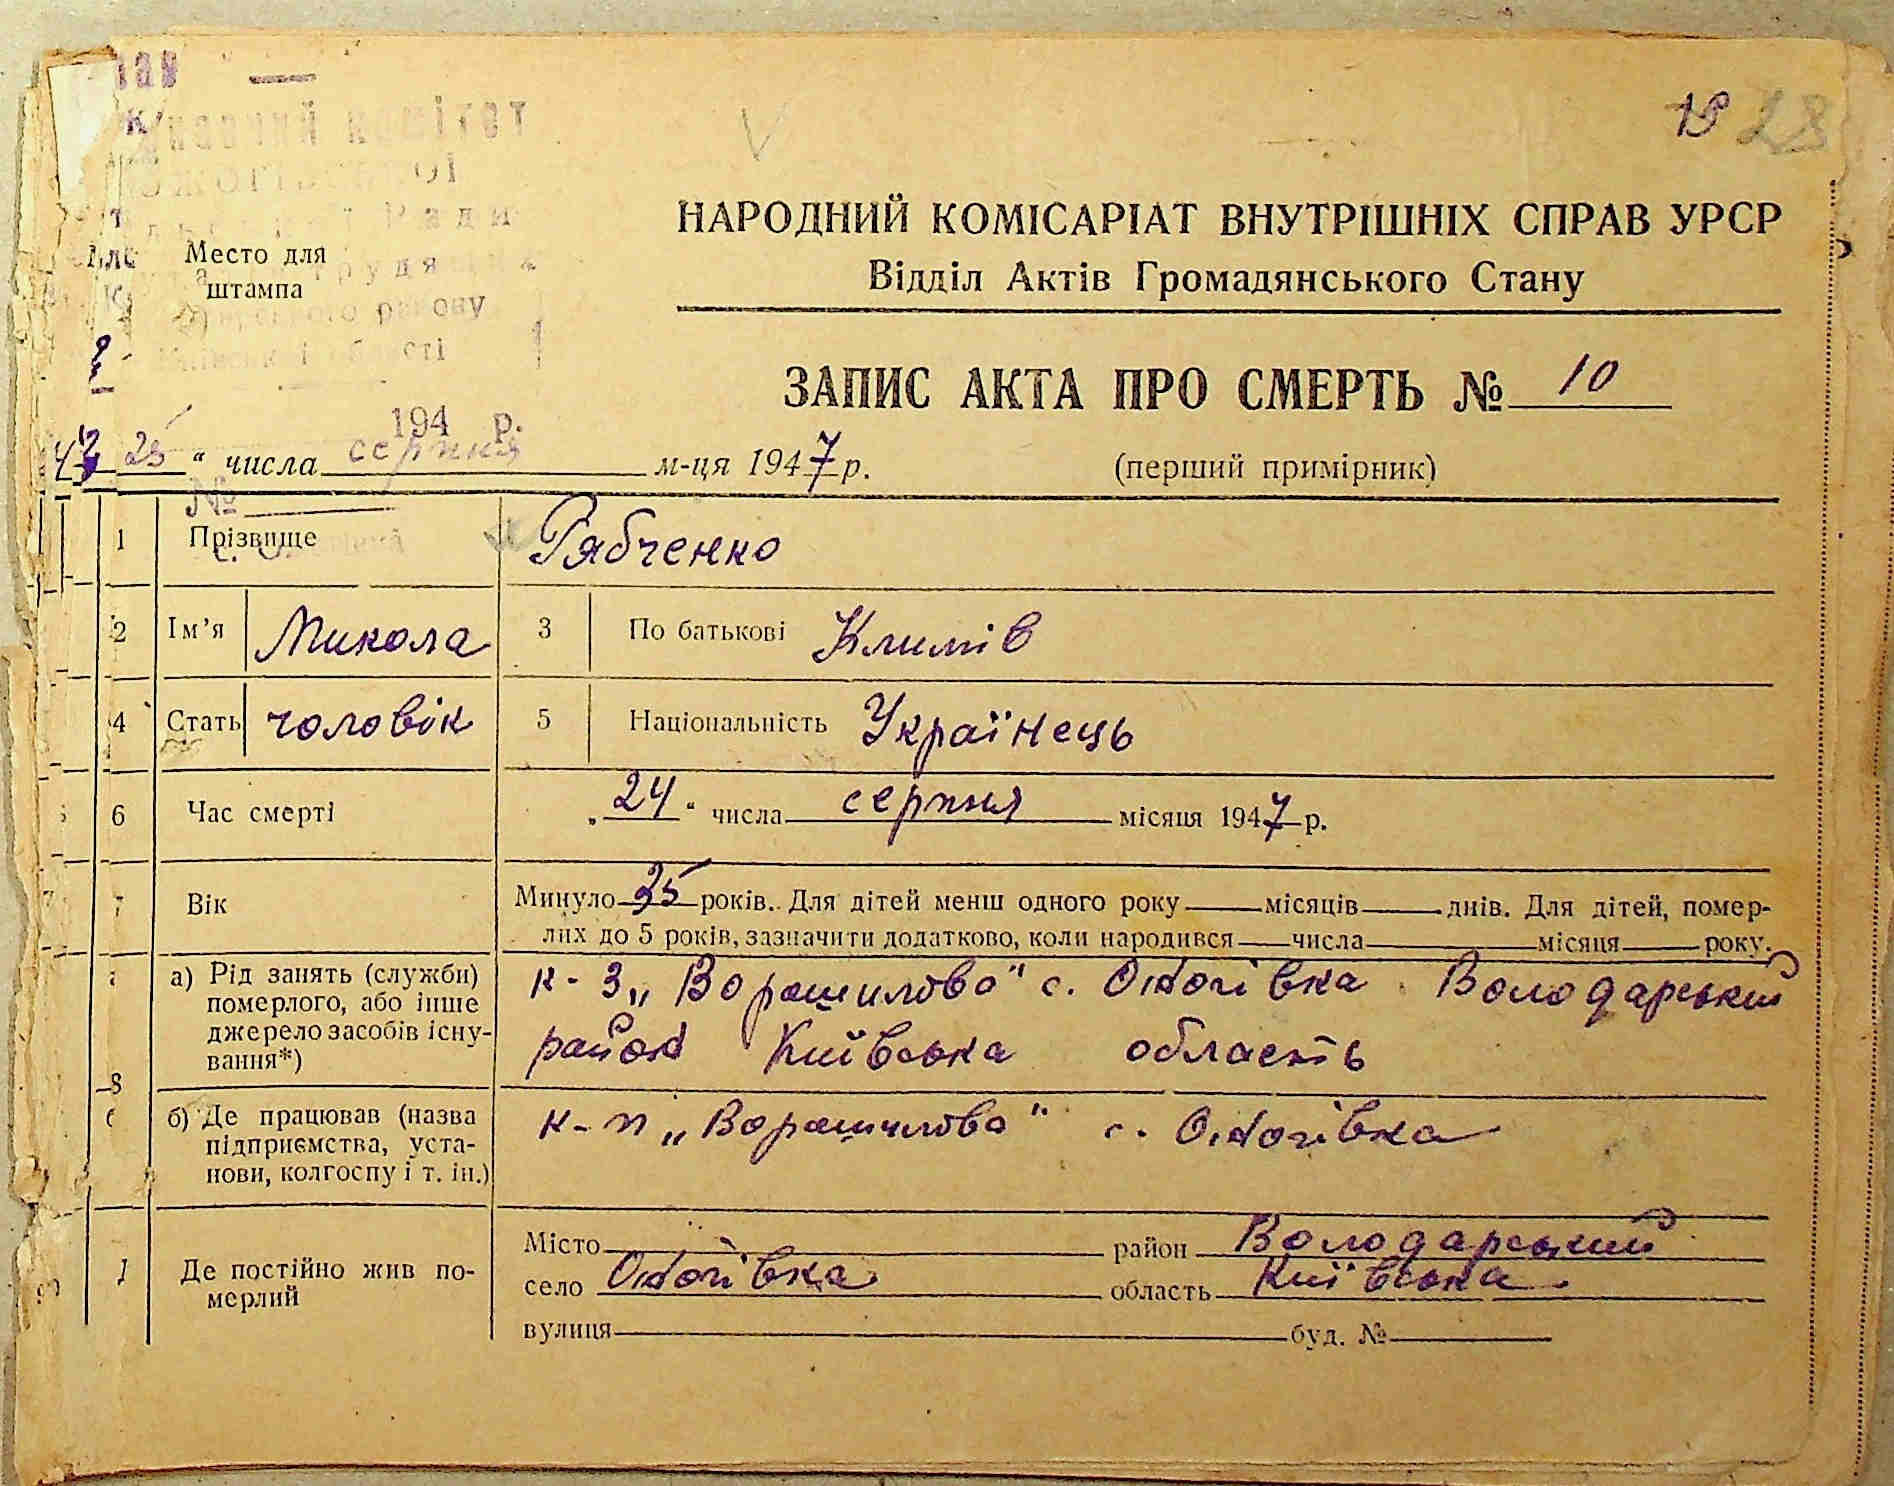 19 28
НАРОДНИЙ КОМІСАРІАТ ВНУТРІШНІХ СПРАВ УРСР
Відділ Актів Громадянського Стану
Место для
штампа
району
області
ЗАПИС АКТА ПРО СМЕРТЬ № 10
194 р.
25 " числа серпня м-ця 1947 р. (перший примірник)
№
1 Прізвище Рябченко
2 Ім'я Микола 3 По батькові Климів
4 Стать чоловік 5 Національність Українець
6 Час смерті „ 24 “ числа серпня місяця 1947 р.
7 Вік Минуло 35 років. Для дітей менш одного року місяців днів. Для дітей, помер-
лих до 5 років, зазначити додатково, коли народився числа місяця року.
8 а) Рід занять (служби)
померлого, або інше
джерело засобів існу-
вання*)
к-з „Ворошилово" с. Ожогівка Володарський
район Київська область
б) Де працював (назва
підприємства, уста-
нови, колгоспу і т. ін.)
к-п „Ворошилово" с. Ожогівка
Де постійно жив по-
мерлий
Місто район Володарський
село Ожогівка область Київська
вулиця буд. №